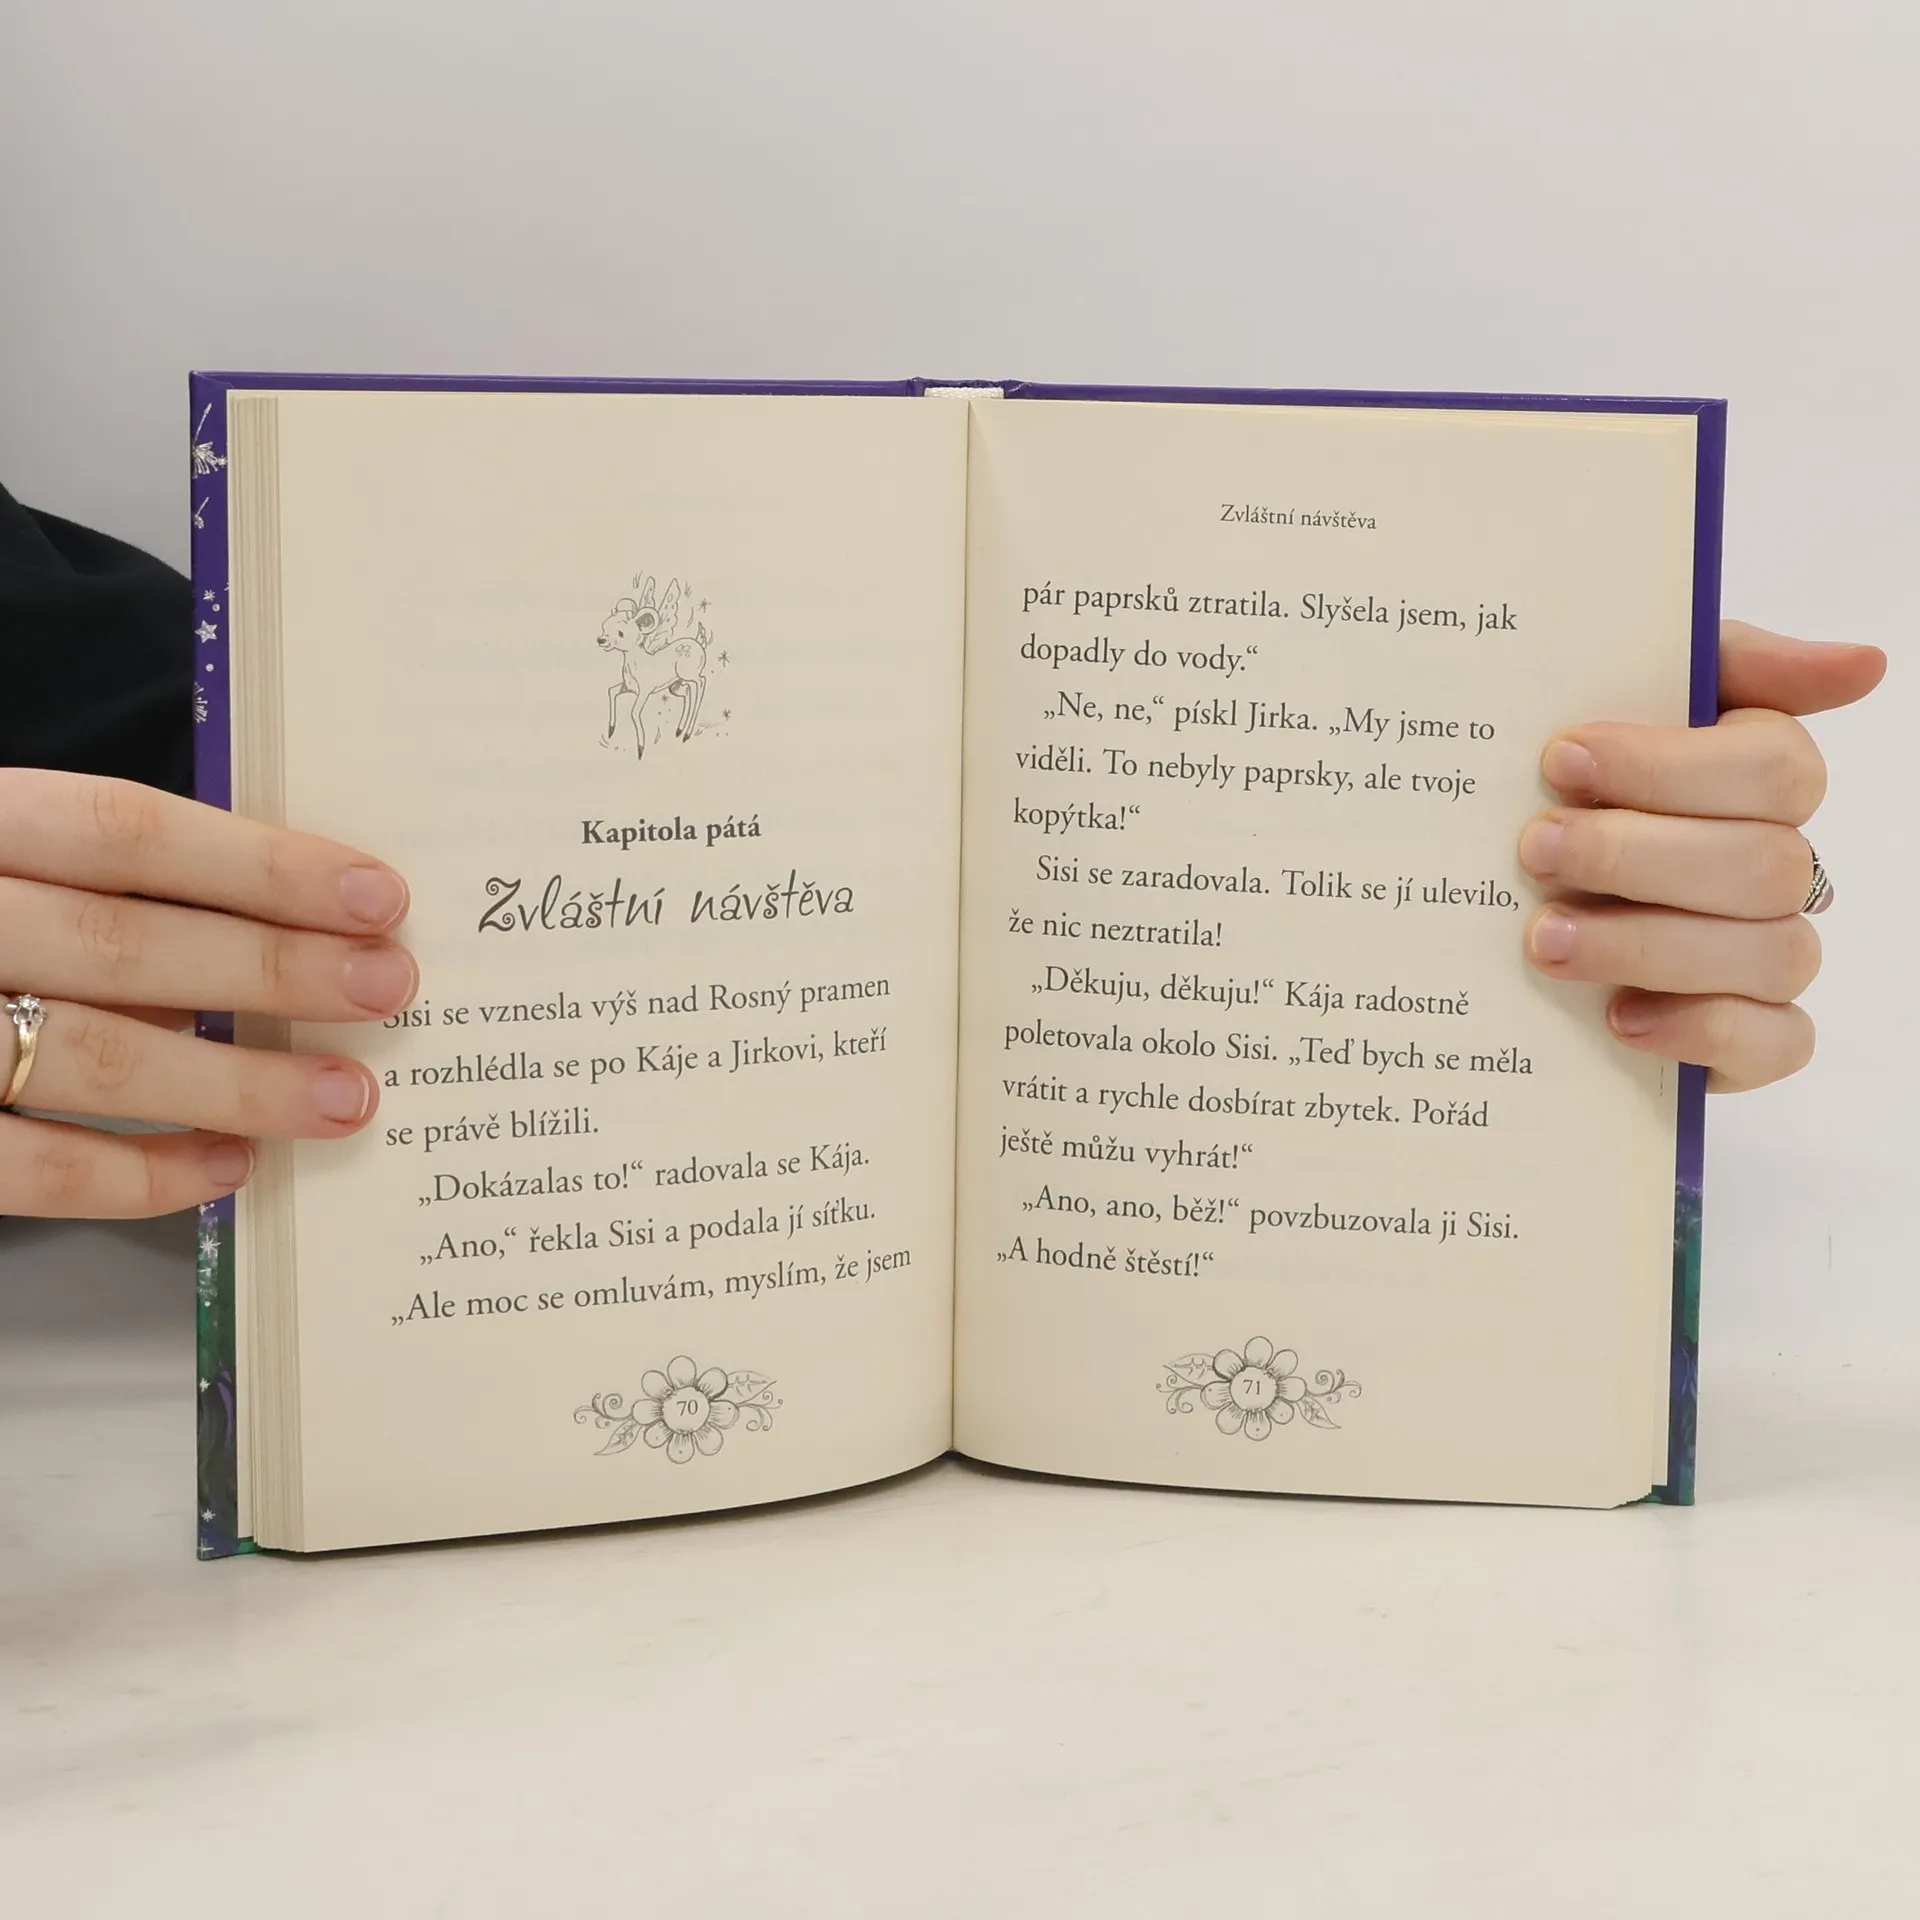 Kapitola pátá
Zvláštní návštěva
Sisi se vznesla výš nad Rosný pramen
a rozhlédla se po Káje a Jirkovi, kteří
se právě blížili.
„Dokázalas to!“ radovala se Kája.
„Ano,“ řekla Sisi a podala jí síťku.
„Ale moc se omluvám, myslím, že jsem
70
Zvláštní návštěva
pár paprsků ztratila. Slyšela jsem, jak
dopadly do vody.“
„Ne, ne,“ pískl Jirka. „My jsme to
viděli. To nebyly paprsky, ale tvoje
kopýtka!“
Sisi se zaradovala. Tolik se jí ulevilo,
že nic neztratila!
„Děkuju, děkuju!“ Kája radostně
poletovala okolo Sisi. „Teď bych se měla
vrátit a rychle dosbírat zbytek. Pořád
ještě můžu vyhrát!“
„Ano, ano, běž!“ povzbuzovala ji Sisi.
„A hodně štěstí!“
71